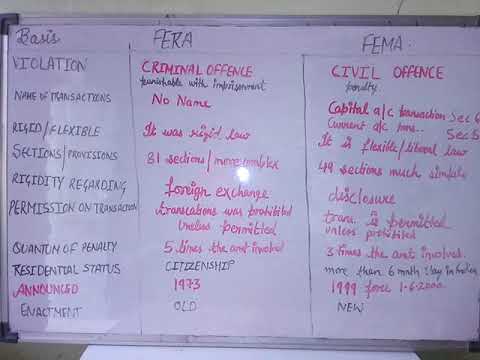 Basis FERA FEMA.
VIOLATION CRIMINAL OFFENCE CIVIL OFFENCE
punishable with imprisonment penalty.
NAME OF TRANSACTIONS No Name Capital a/c transaction Sec 6
Current a/c trans.. Sec 5
RIGID/FLEXIBLE It was rigid law It is flexible/liberal law
SECTIONS/PROVISIONS 81 sections/more complex 49 sections much simple
RIGIDITY REGARDING foreign exchange disclosure
PERMISSION ON TRANSACTION transcations was prohibited trans. is permitted
unless permitted unless prohibited
QUANTUM OF PENALTY 5 times the amt involved 3 times the amt involved.
RESIDENTIAL STATUS CITIZENSHIP more than 6 mnth stay in India
ANNOUNCED 1973 1999 force 1-6-2000.
ENACTMENT OLD NEW